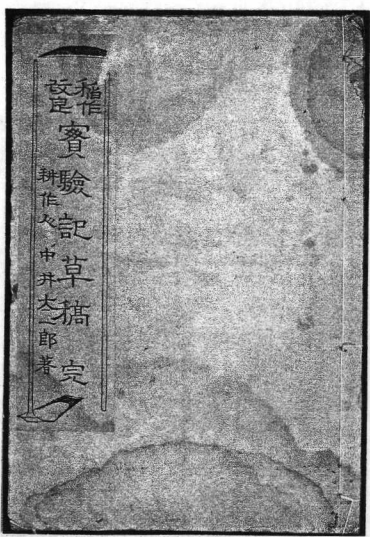 稲作改良實驗記草稿 完
耕作人 中井太一郎著